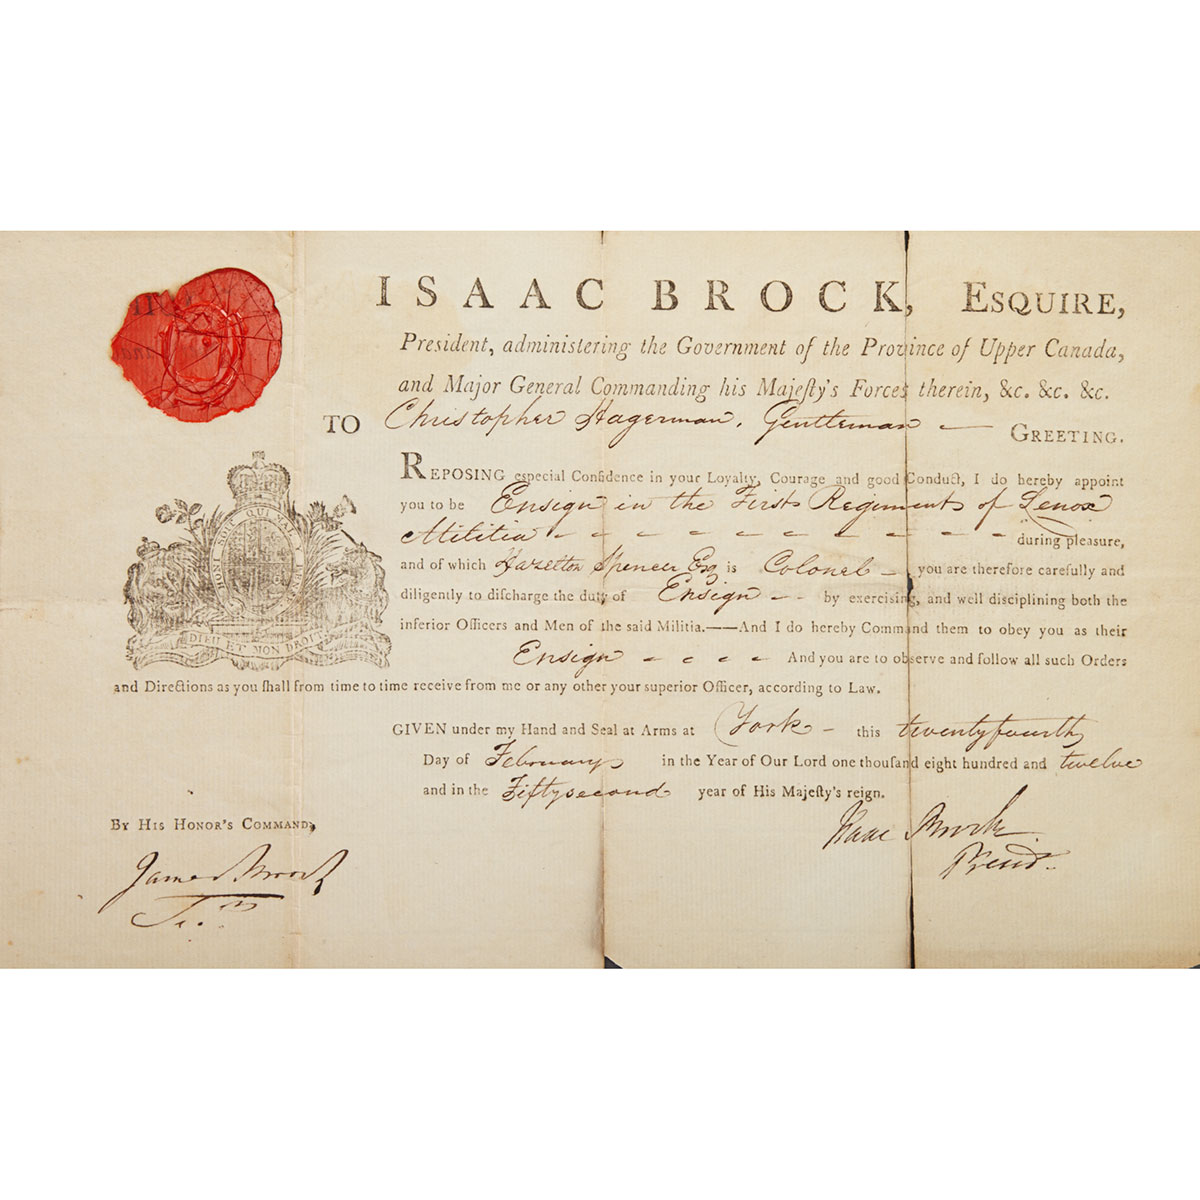 ISAAC BROCK, ESQUIRE,
President, administering the Government of the Province of Upper Canada,
and Major General Commanding his Majeſty's Forces therein, &c. &c. &c.
TO Christopher Hagerman, Gentleman — GREETING.
REPOSING eſpecial Confidence in your Loyalty, Courage and good Conduct, I do hereby appoint
you to be Ensign in the First Regiment of Lenox
Militia - - - - - - - - - - during pleaſure,
and of which Hazelton Spencer Esq is Colonel — you are therefore carefully and
diligently to diſcharge the duty of Ensign - - by exerciſing, and well diſciplining both the
inferior Officers and Men of the ſaid Militia.——And I do hereby Command them to obey you as their
Ensign - - - - And you are to obſerve and follow all ſuch Orders
and Directions as you ſhall from time to time receive from me or any other your ſuperior Officer, according to Law.
GIVEN under my Hand and Seal at Arms at York — this twentyfourth
Day of February in the Year of Our Lord one thouſand eight hundred and twelve
and in the Fiftysecond year of His Majeſty's reign.
Isaac Brock
Presidt.
BY HIS HONOR'S COMMAND,
James Brock
HONI SOIT QUI MAL Y PENSE
DIEU ET MON DROIT